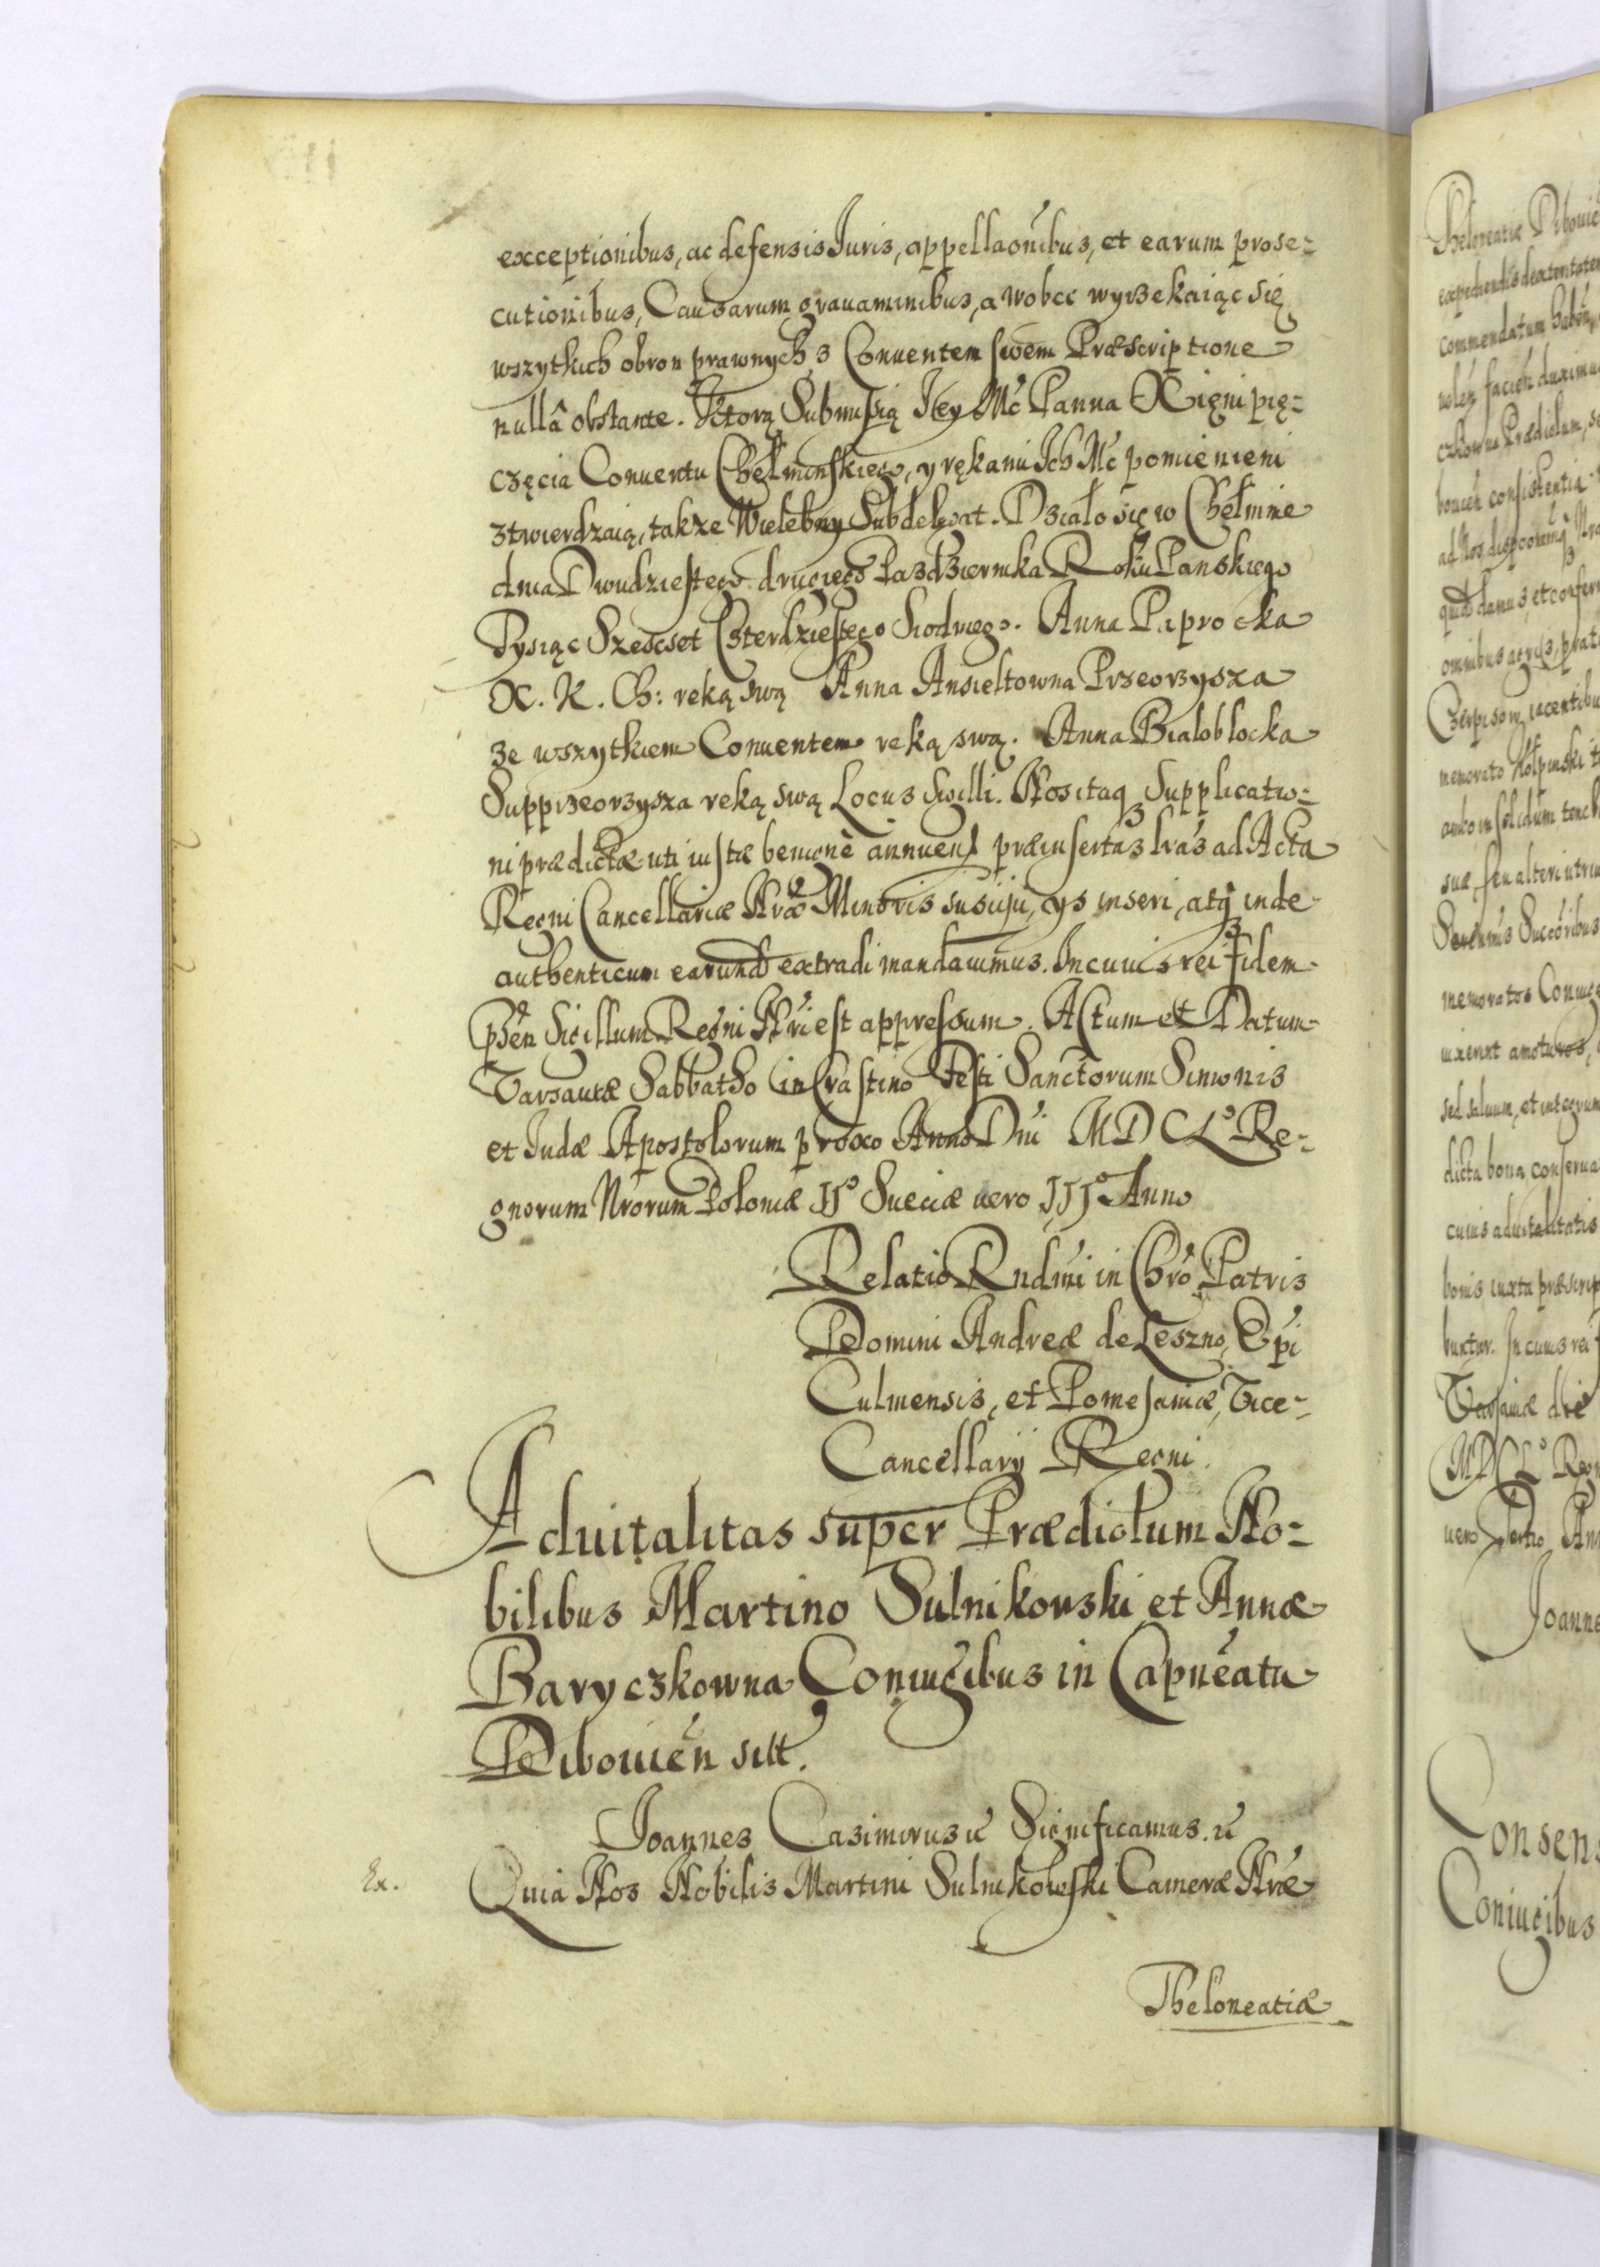 exceptionibus, ac defensis Iuris, appellaońibus, et earum prose-
cutionibus, Causarum gravaminibus, a wobec wyrzekaiąc się
wszytkich obron prawnych z Conuentem swem Præscriptione
nullâ obstante. Ktorą Submisią Iey Mć Panna Xięni pię-
częcia Conuentu Chełminskiego, y rękami Ich Mć pomienieni
ztwierdzaią, takze Wielebny Subdelegat. Działo się w Chełmnie
dnia Dwudziestego drugiego Pazdziernika Roku Panskiego
Tysiąc Szescset Czterdziestego Siodmego. Anna Paprocka
X. K. Ch: ręką swą Anna Ansieltowna Przeorzysza
ze wszytkiem Conuentem ręką swą. Anna Bialoblocka
Supprzeorzysza ręką swą Locus Sigilli. Nos itaq Supplicatio-
ni prædictæ uti iustæ benigne annuen præinsertas lras ad Acta
Regni Cancellariæ Nræ Minoris suscipi, ys inseri, atq inde
authenticum earund extradi mandavimus. In cuius rei fidem
pñtn Sigillum Regni Nri est appressum. Actum et Datum
Varsaviæ Sabbatho in Crastino Festi Sanctorum Simonis
et Iudæ Apostolorum proxo Anno Dni MDCLº Re-
gnorum Nrorum Poloniæ IIº Sueciæ uero IIIº Anno
Relatio Rndmi in Chro Patris
Domini Andreæ de Leszno, Epi
Culmensis, et Pomesaniæ, Vice-
Cancellarij Regni.
Aduitalitas super Prædiolum No-
bilibus Martino Sulnikowski et Annæ
Baryczkowna Coniugibus in Capneatu
Dibouien sitt.
Ioannes Casimirus ec Significamus. ec
Ex. Quia Nos Nobilis Martini Sulnikowski Cameræ Nræ
Theloneatiæ
Theloneatiæ Dibouie
expediendis dexteritatem
commendatum haben
czkowna Prædiolum, se
bouien consistentia
quod damus, et confer
omnibus agris, prat
Czerpisow iacentibu
memorato Kołpinski
suæ, seu alteri utriu
memoratos Coniug
sed saluum, et integrum
dicta bona conserua
cuius aduitalitatis
bonis iuxta præscrip
buntur. In cuius rei f
MDCLº Regn
uero Tertio Ann
Ioanne
Consens
Coniugibus